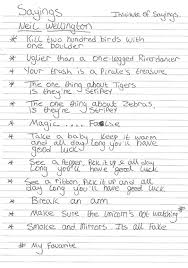 Sayings Institute of Sayings.
Neil Wellington
* Kill two hundred birds with
one boulder
* Uglier than a one legged Riverdancer
* Your trash is a Pirate's treasure.
* The one thing about Tigers
is they're Stripier
* The one thing about Zebras,
is they're Stripier
* Magic.....
* Take a baby, keep it warm
and all day long you'll have
good luck
* See a Pigeon, Pick it up & all day
long you'll have good luck
* See a ribbon, Pick it up and all
day long you'll have good luck.
* Break an arm
* Make sure the Unicorn's not watching
* Smoke and Mirrors. Its all Fake
* My Favourite